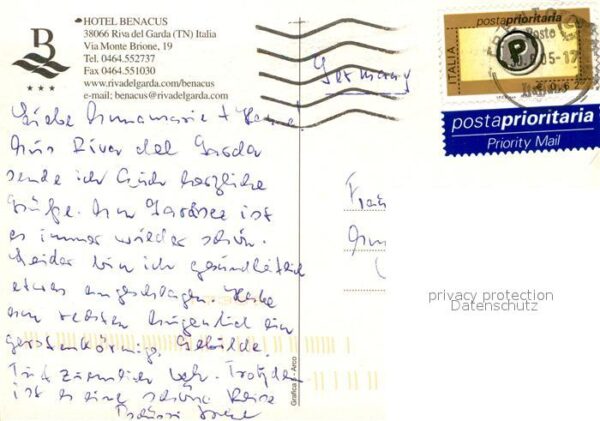 HOTEL BENACUS
38066 Riva del Garda (TN) Italia
Via Monte Brione, 19
Tel. 0464.552737
Fax 0464.551030
www.rivadelgarda.com/benacus
e-mail; benacus@rivadelgarda.com
B
Germany
postaprioritaria
ITALIA
P
05-17
€0,62
postaprioritaria
Priority Mail
Liebe Annamarie +
Aus Riva del Garda
sende ich Euch herzliche
Grüße. Am Gardasee ist
es immer wieder schön.
Leider bin ich gesundheitlich
etwas angeschlagen. Habe
am rechten Augenlid ein
gerstenkörniges Gebilde.
Tut ziemlich weh. Trotzdem
ist es eine schöne Reise
Frau
privacy protection
Datenschutz
Grafica 5 - Arco